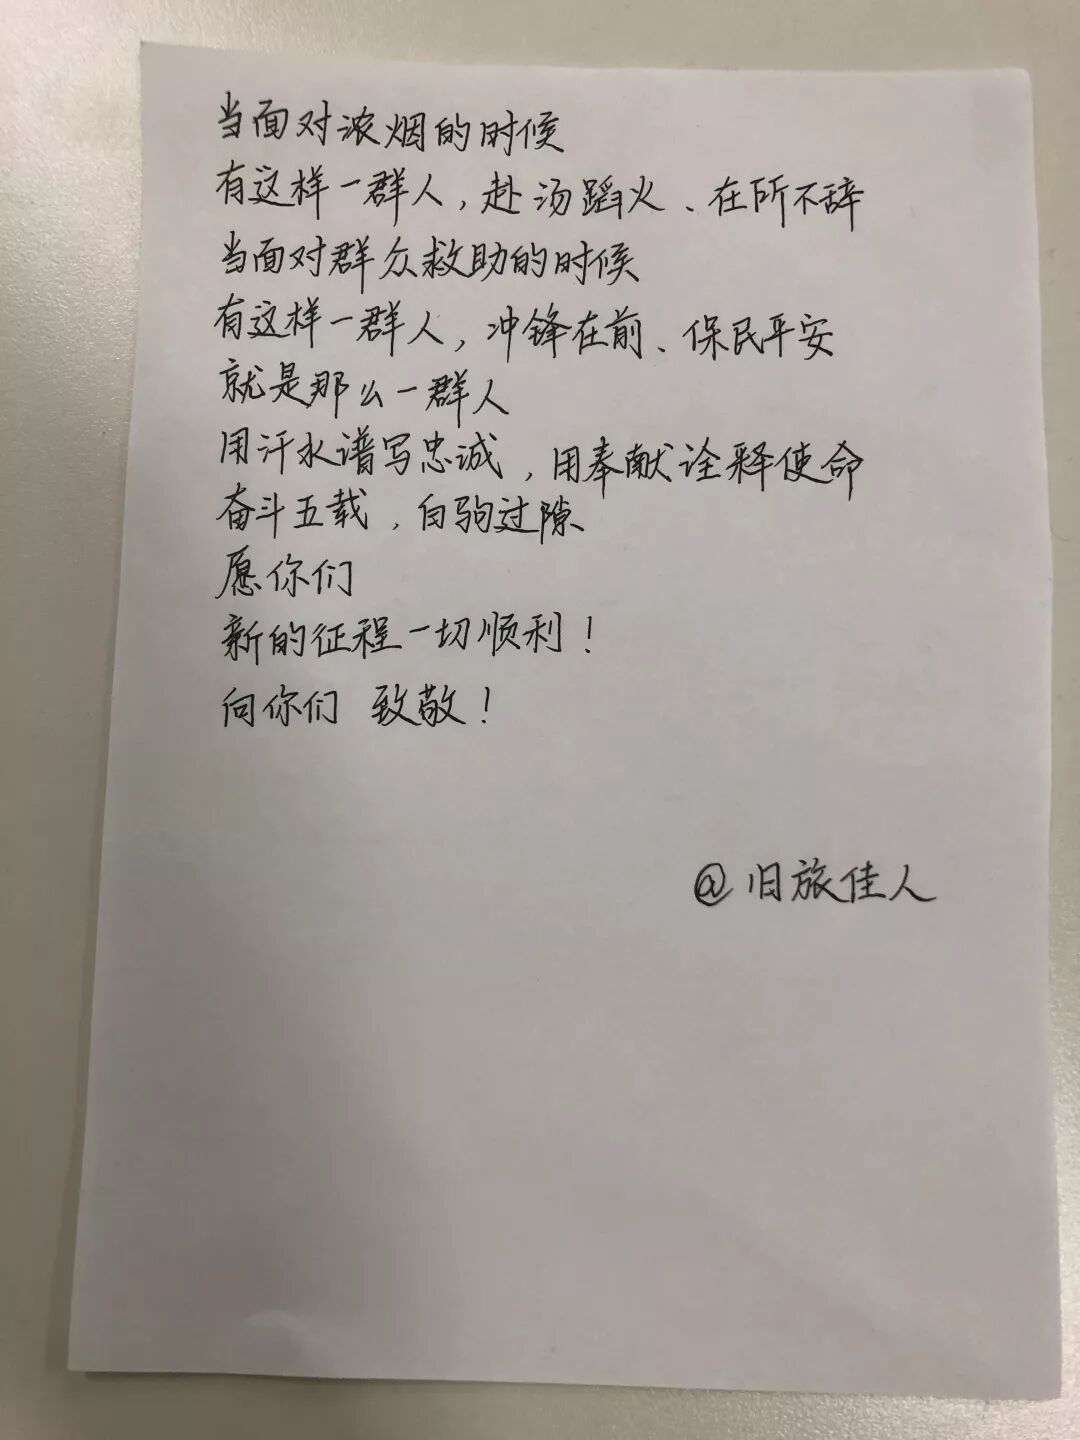 当面对浓烟的时候
有这样一群人，赴汤蹈火、在所不辞
当面对群众救助的时候
有这样一群人，冲锋在前、保民平安
就是那么一群人
用汗水谱写忠诚，用奉献诠释使命
奋斗五载，白驹过隙
愿你们
新的征程一切顺利！
向你们 致敬！
@旧旅佳人